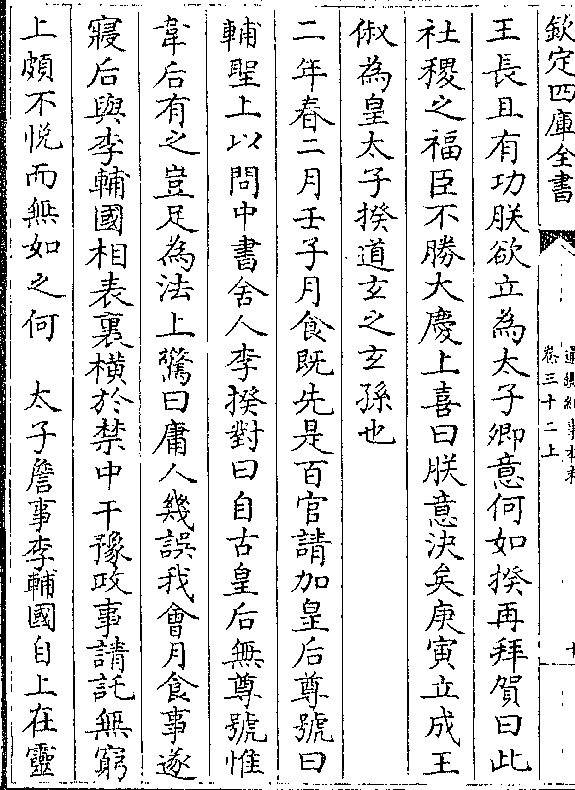 欽定四庫全書
卷三十二上
王長且有功朕欲立為太子卿意何如揆再拜賀曰此
社稷之福臣不勝大慶上喜曰朕意決矣庚寅立成王
俶為皇太子揆道玄之玄孫也
二年春二月壬子月食既先是百官請加皇后尊號曰
輔聖上以問中書舍人李揆對曰自古皇后無尊號惟
韋后有之豈足為法上驚曰庸人幾誤我會月食事遂
寢后與李輔國相表裏橫於禁中干豫政事請託無窮
上頗不悦而無如之何　太子詹事李輔國自上在靈